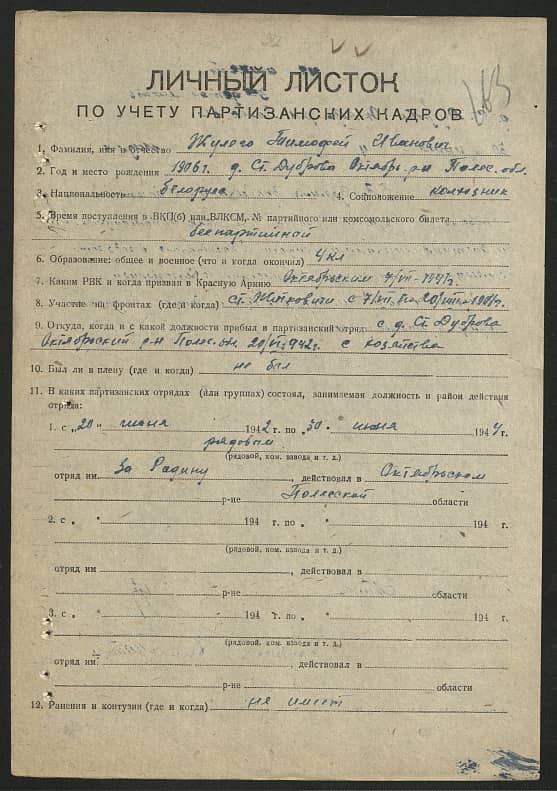 ЛИЧНЫЙ ЛИСТОК
ПО УЧЕТУ ПАРТИЗАНСКИХ КАДРОВ
1. Фамилия, имя и отчество Жулего Тимофей Иванович
2. Год и место рождения 1906 г. д. Ст. Дуброва Октябр. р-н Полес. обл.
3. Национальность белорус 4. Соцположение колхозник
5. Время поступления в ВКП(б) или ВЛКСМ, № партийного или комсомольского билета
беспартийной
6. Образование: общее и военное (что и когда окончил) 4 кл
7. Каким РВК и когда призван в Красную Армию Октябрьским 7/VII-1941г.
8. Участие на фронтах (где и когда) ст. Житковичи с 7/VII. по 20/VIII-1941г.
9. Откуда, когда и с какой должности прибыл в партизанский отряд с д. Ст. Дуброва
Октябрьский р-н Полес. обл. 20/VI-1942г. с хозяйства
10. Был ли в плену (где и когда) не был
11. В каких партизанских отрядах (или группах) состоял, занимаемая должность и район действия
отряда:
1. с „20" июня 1942 г. по „30" июня 1944 г.
рядовым
(рядовой, ком. взвода и т. д.)
отряд им За Радину, действовал в Октябрьском
р-не Полесской области
2. с „ " 194 г. по „ " 194 г.
(рядовой, ком. взвода и т. д.)
отряд им , действовал в
р-не области
3. с „ " 194 г. по „ " 194 г.
(рядовой, ком. взвода и т. д.)
отряд им. , действовал в
р-не области
12. Ранения и контузии (где и когда) не имеет